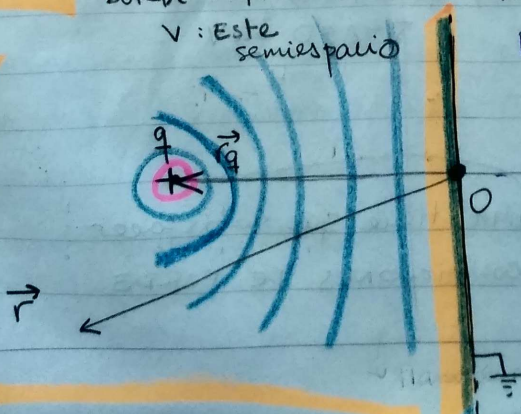 V : Este
semiespacio
q
r⃗q
O
r⃗